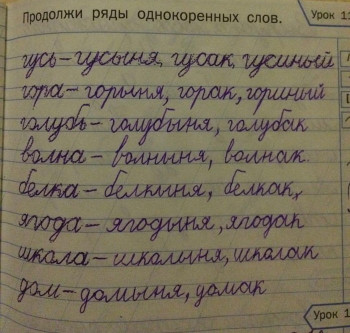 Продолжи ряды однокоренных слов.
Урок 1
гусь – гусыня, гусак, гусиный
гора – горыня, горак, гориный
голубь – голубыня, голубак
волна – волныня, волнак.
белка – белкыня, белкак,
ягода – ягодыня, ягодак
школа – школыня, школак
дом – домыня, домак
Урок 1